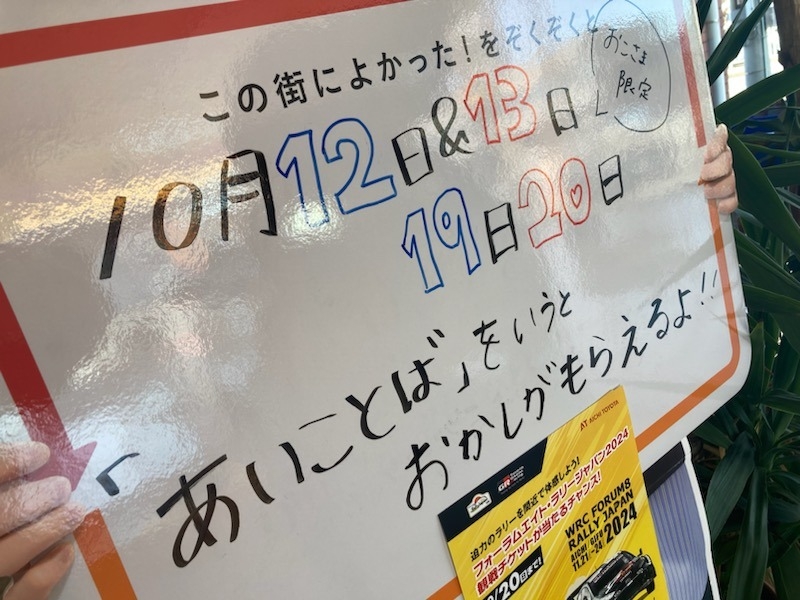 この街によかった！をぞくぞくと
おこさま
限定
10月12日&13日
19日20日
「あいことば」をいうと
おかしがもらえるよ!!
AICHI TOYOTA
GR
迫力のラリーを間近で体感しよう！
フォーラムエイト・ラリージャパン2024
観戦チケットが当たるチャンス!
/20日まで!
WRC FORUM8
RALLY JAPAN
AICHI / GIFU
11.21-24
2024